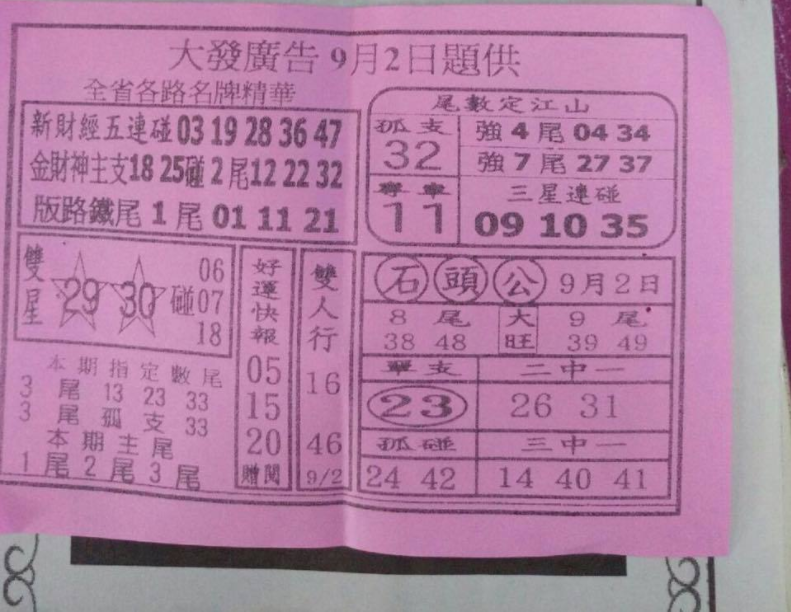 大發廣告9月2日題供
全省各路名牌精華
新財經五連碰 03 19 28 36 47
金財神主支18 25碰 2 尾12 22 32
版路鐵尾 1 尾 01 11 21
尾數定江山
孤支
32
強 4 尾 04 34
強 7 尾 27 37
專車
11
三星連碰
09 10 35
雙星
29 30 碰
06
07
18
本期指定數尾
3 尾 13 23 33
3 尾 孤 支 33
本期主尾
1 尾 2 尾 3 尾
好運快報
05
15
20
贈閱
雙人行
16
46
9/2
石頭公 9月2日
8 尾
38 48
大旺
9 尾
39 49
單支
23
二中一
26 31
孤碰
24 42
三中一
14 40 41